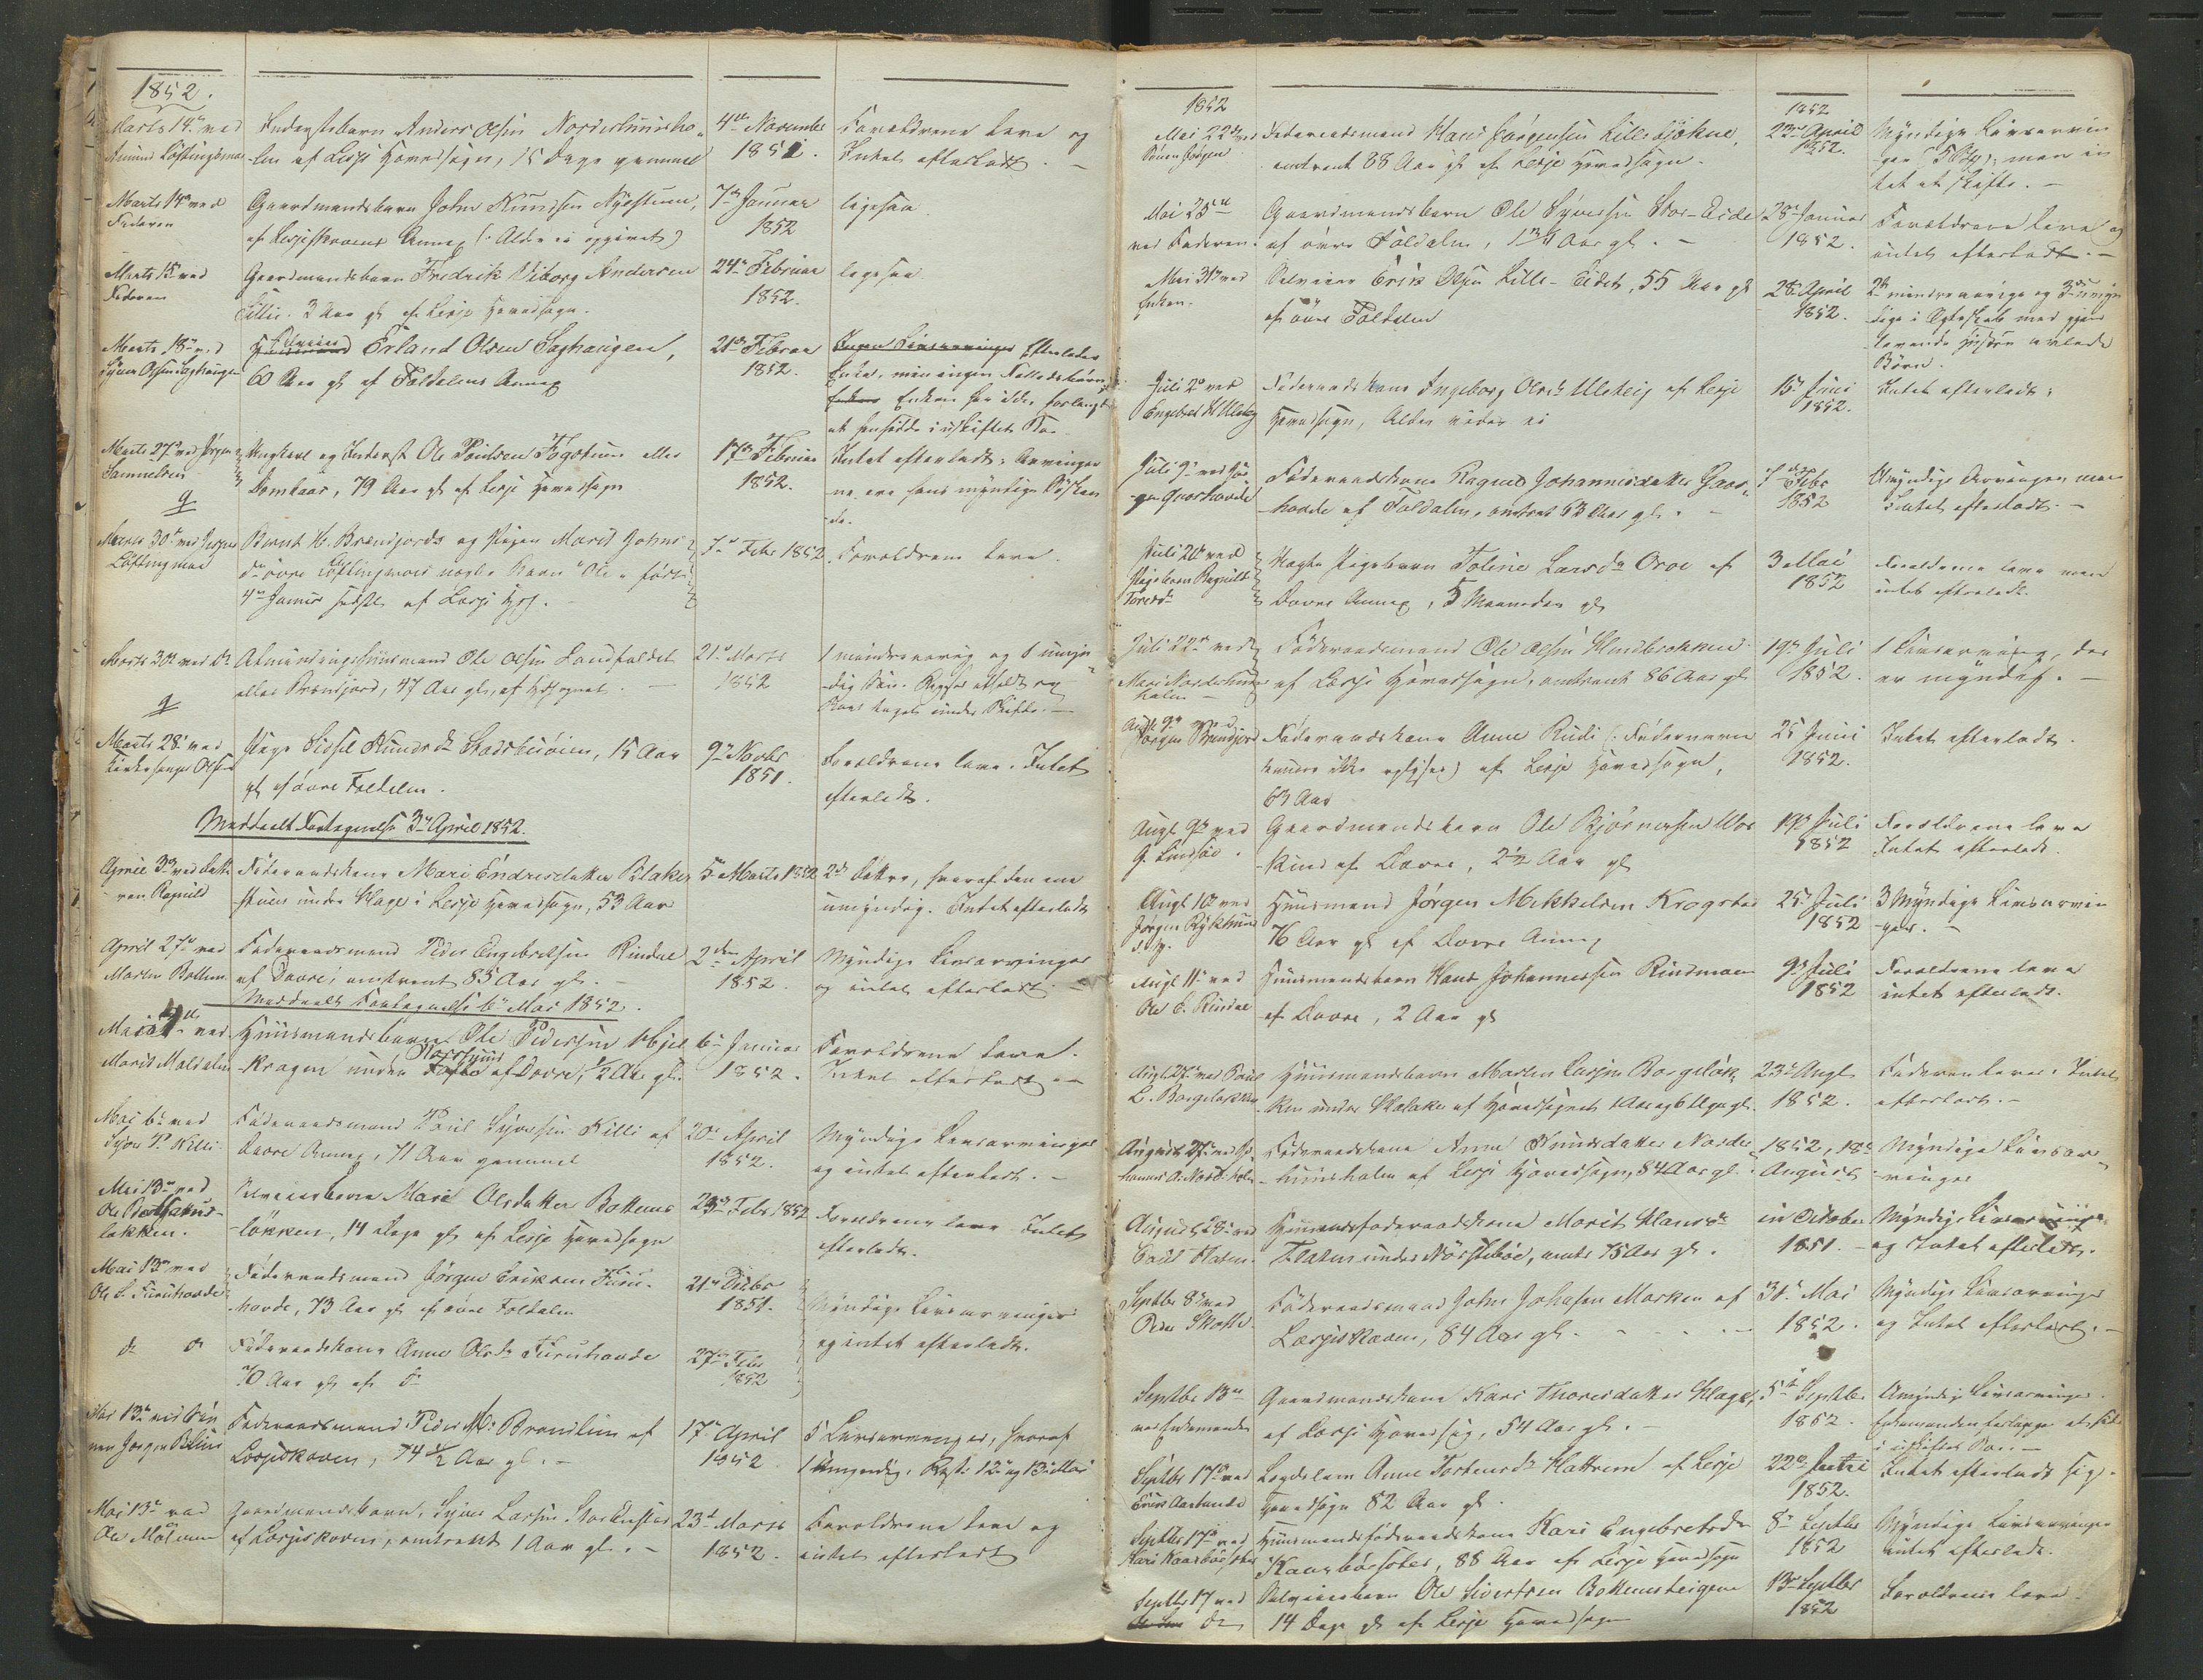 1852.
Marts 14de ved
Amund Løftingsmo
Inderstebarn Anders Olsen Nordslimsho-
len af Lesje Hovedsogn, 15 Dage gammel
4de November
1851.
Forældrene leve og
Intet efterladt. -
Marts 14de ved
Faderen
Gaardmandsbarn John Knudsen Nystuen,
af Lesjeskovens Annex (: Alder ei opgivet)
7de Januar
1852
ligesaa
Marts 15 ved
Faderen
Gaardmandsbarn Fredrik Viborg Andersen
Killie. 3 Aar gl af Lesje Hovedsogn.
24de Februar
1852.
ligesaa
Marts 18de ved
Syver Olsen Saghaugen
Selveier
Erland Olsen Saghaugen,
60 Aar gl af Foldalens Annex
21de Februar
1852.
Ingen Livsarvinger Efterlader
Enke, men ingen Fælledsbørn
Enken Enken har ikke forlangt
at hensidde i uskiftet Bo
Marts 27de ved Jørgen
Samuelsen
Ungkarl og Inderst Ole Poulsen Fogstuen eller
Domhaar, 79 Aar gl af Lesje Hovedsogn
17de Februar
1852.
Intet efterladt; Arvinger
ne ere hans myndige Søsken
de.
Marts 30te ved Jesper
Løftingmoe
Bernt H. Brændjords og Pigen Marit Johns
dr øvre Løftingmoes uægte Barn "Ole" født
4de Januar sidstl. af Lesje Hsg.
7de Febr 1852.
Forældrene leve.
Marts 30te ved do
Almindingshuusmand Ole Olsen Landfaldet
eller Brændjord, 47 Aar gl, af Hovedsognet. -
21de Marts
1852
1 mindreaarig og 1 umyn
dig Søn. Registr. afholdt og
Boet taget under Skifte. -
Marts 28de ved
Kirkesanger Olsen
Pige Sidsel Knudsdr Stadsbuøien, 15 Aar
gl af øvre Foldalen.
9de Novbr
1851.
Forældrene leve. Intet
efterladt.
Meddeelt Fortegnelse 3de April 1852.
April 3de ved Datte
ren Ragnild
Føderaadskone Mari Endresdatter Blaker
stuen under Hage i Lesje Hovedsogn, 53 Aar
5te Marts 1852
2de Døttre, hvoraf den ene
umyndig. Intet efterladt
April 27de ved
Morten Bottem
Føderaadsmand Peder Engebretsen Rindal
af Dovre, omtrent 85 Aar gl. -
2den April
1852.
Myndige Livsarvinger
og intet efterladt. -
Meddeelt Fortegnelse 6te Mai 1852.
Mai 4de ved
Marit Moldalen
Huusmandsbarn Ole Pedersen Hjel
kragen under Tofte af Dovre, 1/2 Aar gl.
6te Januar
1852.
Forældrene leve.
Intet efterladt. -
Mai 6te ved
Syver P. Killi.
Føderaadsmand Poul Syversen Killi af
Dovre Annex, 71 Aar gammel
20de April
1852.
Myndige Livsarvinger
og intet efterladt. -
Mai 13de ved
Ole
løkken.
Selveierbarn Mari Olsdatter Bottems
løkken, 14 Dage gl af Lesje Hovedsogn
29de Febr 1852
Forældrene leve - Intet
efterladt.
Mai 13de ved
Ole E. Furuhovde
Føderaadsmand Jørgen Eriksen Furu-
hovde, 73 Aar gl af øvre Foldalen
21de Decbr
1851.
Myndige Livsarvinger
og intet efterladt.
do do
Føderaadskone Anne Olsdr Furuhovde
70 Aar gl af do
27de Febr
1852
Mai 13de ved Søn
nen Jørgen
Føderaadsmand Peder M. Brendlien af
Lesjeskoven, 74 1/2 Aar gl. -
17de April
1852
5 Livsarvinger, hvoraf
1 umyndig. Regstr. 12te og 13de Mai
Mai 13de ved
Ole Mølmen
Gaardmandsbarn, Syver Larsen Storlusten
af Lesjeskoven, omtrent 1 Aar gl. -
23de Marts
1852.
Forældrene leve og
intet efterladt
1852
Mai 22de ved
Sønnen Jørgen
Føderaadsmand Hans Jørgensen Lillebjøkne,
omtrent 88 Aar gl af Lesje Hovedsogn.
1852
23de April
1852.
Myndige Livsarvin
ger (5 Stk), men in
tet at skifte. -
Mai 25de
ved Faderen.
Gaardmandsbarn Ole Syversen Stor-Eide
af øvre Foldalen, 1 3/4 Aar gl. -
28de Januar
1852.
Forældrene leve og
intet efterladt. -
Mai 31te ved
Enken.
Selveier Erik Olsen Lille-Eidet, 55 Aar gl
af øvre Foldalen
28de April
1852.
2de mindreaarige og 3de umyn
dige i Egteskab med gjen
levende Hustru avlede
Børn.
Juli 2de ved
Engebret H Ulekleiv
Føderaadskone Ingeborg Olsdr Ulekleiv af Lesje
Hovedsogn, Alder vides ei
15de Juni
1852.
Intet efterladt.
Juli 9de ved Jør
gen Gaashovde
Føderaadskone Ragnild Johannesdatter Gaas
hovde af Foldalen, omtrent 63 Aar gl. -
7de Febr
1852
Myndige Arvinger men
Intet efterladt. -
Juli 20de ved
Pigebarn Ragnild
Toresdr
Uægte Pigebarn Toline Larsdr Oroe af
Dovre Annex, 5 Maaneder gl
3 Mai
1852
Forældrene leve men
intet efterladt.
Juli 22de ved
Mari Nordslims
holm -
Føderaadsmand Ole Olsen Slindbrækken
af Lesje Hovedsogn, omtrent 86 Aar gl
19de Juli
1852.
1 Livsarving, der
er myndig. -
Augt 9de ved
Jørgen Brendjord
Føderaadskone Anne Rudi (: Fødenavn
kunne ikke oplyses) af Lesje Hovedsogn,
63 Aar
25 Juni
1852.
Intet efterladt.
Augt 9de ved
G. Lindsøe.
Gaardmandsbarn Ole Bjørnersen Wor
kind af Dovre, 2 1/2 Aar gl
19de Juli
1852
Forældrene leve
Intet efterladt.
Augt 10de ved
Jørgen Rykhuus
Huusmand Jørgen Mikkelsen Krogstad
76 Aar gl af Dovre Annex
25de Juli
1852
3 Myndige Livsarvin
ger. -
Augt 11te ved
Ole E. Rindal
Huusmandsbarn Hans Johannessen Rindmoen
af Dovre, 2 Aar gl
9de Juli
1852
Forældrene leve
intet efterladt.
L. Borgeløkken
Huusmandsbarn Morten Larsen Borgeløk
ken under Skotaker af Hovedsognet 1 Aar og 6 Uger gl.
23de Augt
1852.
Faderen lever. Intet
efterladt. -
August 27de ved Jo
hannes A. Nord. holm
Føderaadskone Anne Knudsdatter Nords
limsholm af Lesje Hovedsogn, 84 Aar gl.
1852, 18de
August
Myndige Livsar-
vinger
August 28de ved
Flaten.
Huusmandsføderaadskone Marit Hansdr
Flaten under Nørstebøe, omtr 75 Aar gl.
in October
1851. -
Myndige Livsarvinger
og Intet efterladt.
Septbr 8de ved
Peder Skotte.
Føderaadsmand John Johnsen Morken af
Lesjeskoven, 84 Aar gl. - - - -
31te Mai
1852.
Myndige Livsarvinger
og Intet efterladt. -
Septbr 13de
ved Enkemanden
Gaardmandskone Kari Thoresdatter Hage,
af Lesje Hovedsog, 54 Aar gl. -
5te Septbr
1852.
Umyndige Livsarvinger.
Enkemanden forlanger at sidde
i uskiftet Bo. -
Septbr 17de ved
Erik Aastande
Lægdslem Anne Torstensdr Hattrem af Lesje
Hovedsogn 82 Aar gl.
22de Juli
1852.
Intet efterladt sig.
Septbr 17de ved
Kari Kaarbøesæter
Huusmandsføderaadskone Kari Engebretsdr
Kaarbøesæter, 88 Aar af Lesje Hovedsogn
8de Septbr
1852
Myndige Livsarvinger
intet efterladt.
Septbr 17 ved
do
Selveierbarn Ole Sivertsen Bottemsteigene
14 Dage gl af Lesje Hovedsogn
13de Septbr
1852
Forældrene leve